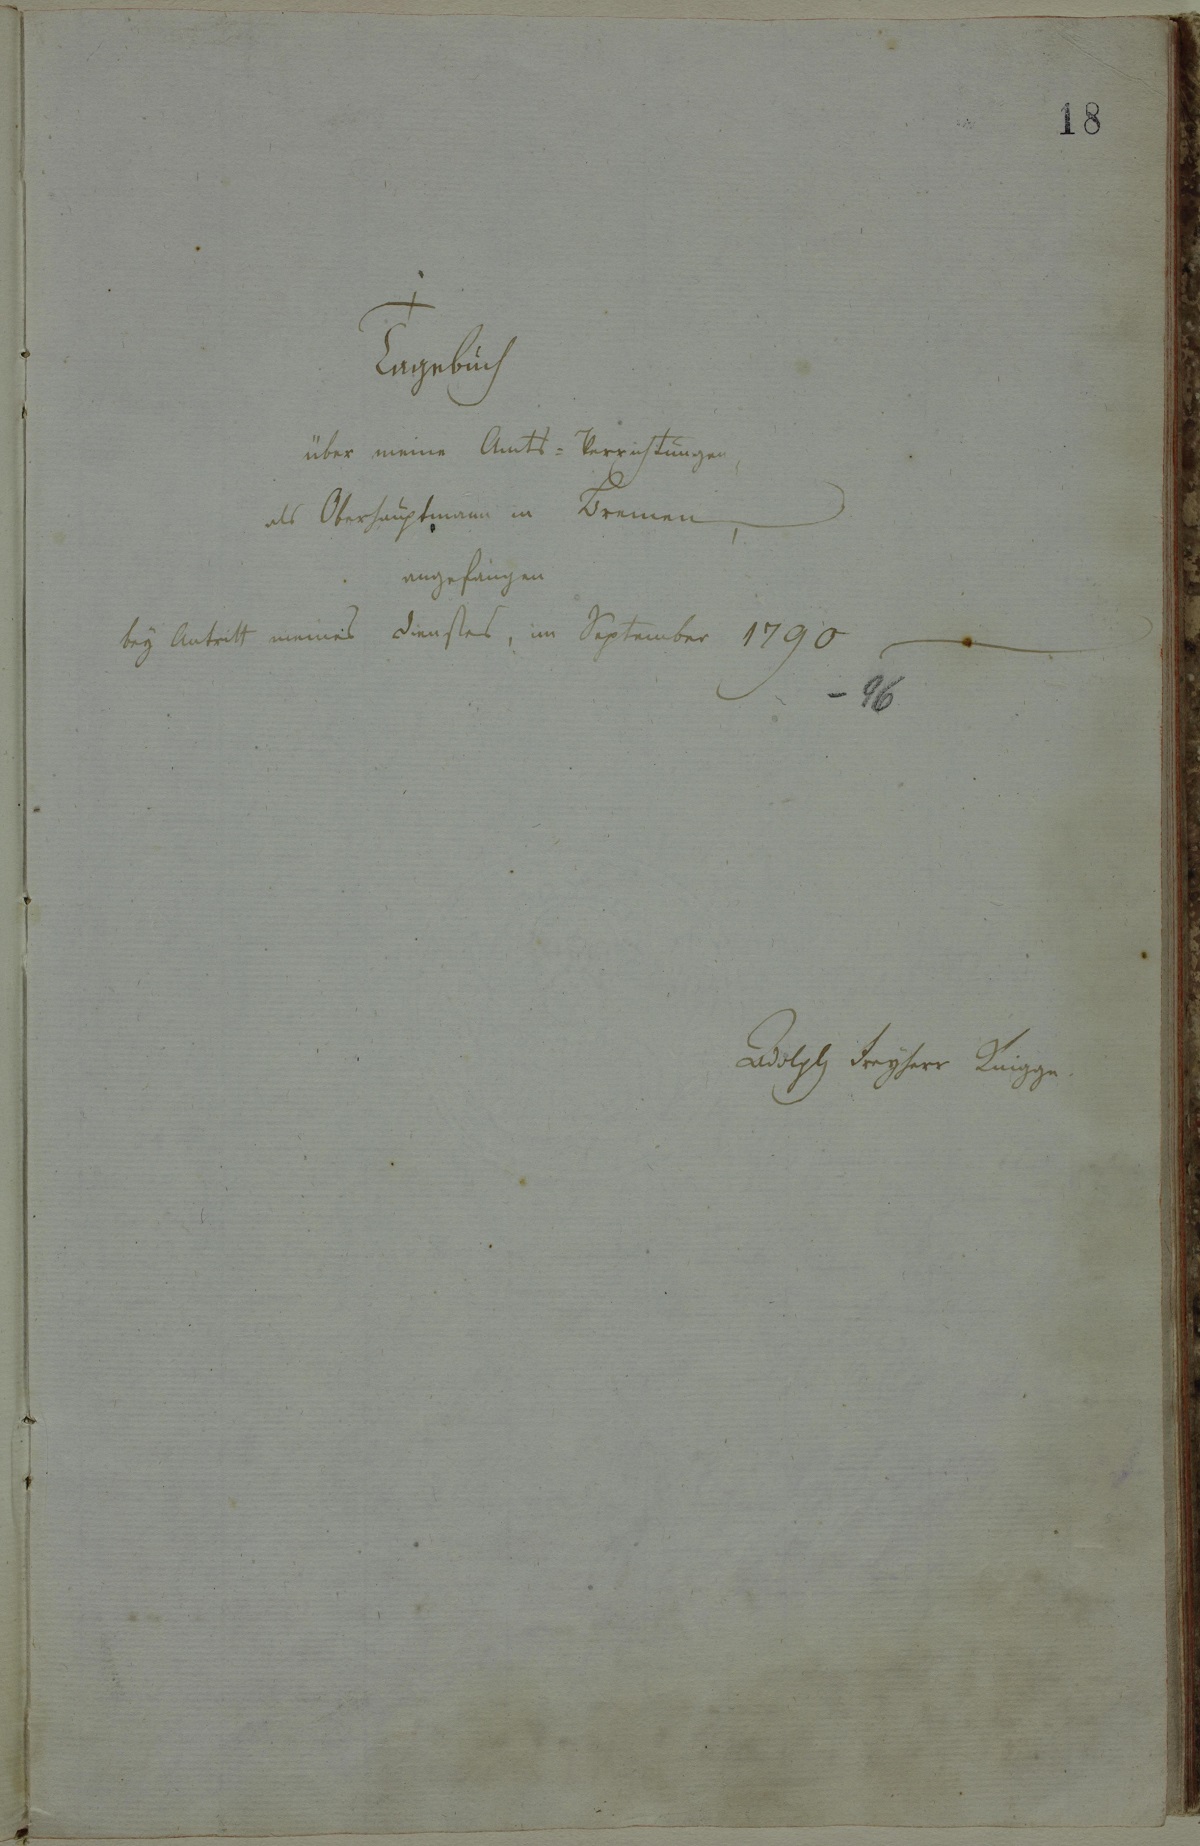 18
Tagebuch
über meine Amts=Verrichtungen,
als Oberhauptmann in Bremen,
angefangen
bey Antritt meines Dienstes, im September 1790
- 96
Adolph Freyherr Knigge.